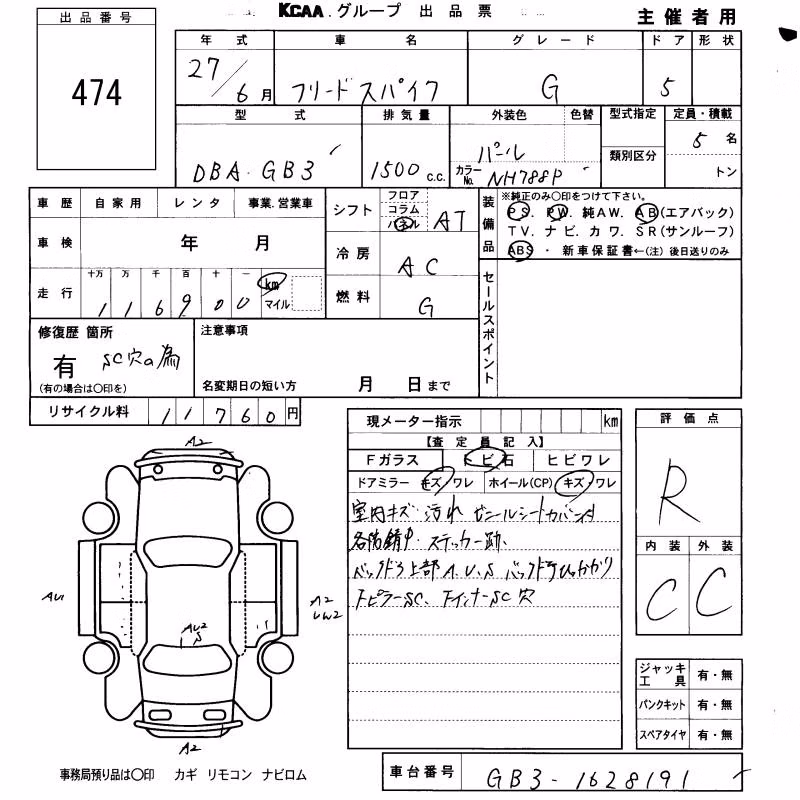 KCAA.グループ 出品票
主催者用
出品番号
474
年式 車名 グレード ドア 形状
27/6月 フリードスパイク G 5
型式 排気量 外装色 色替 型式指定 定員・積載
DBA-GB3 1500 c.c. パール 5名
カラーNo. NH788P 類別区分 トン
車歴 自家用 レンタ 事業.営業車
シフト フロア コラム パネル AT
装備品 ※純正のみ○印をつけて下さい。
PS. PW. 純AW. AB(エアバック)
TV. ナビ. カワ. SR(サンルーフ)
ABS ・ 新車保証書←(注) 後日送りのみ
車検 年 月
冷房 AC
走行 十万 万 千 百 十 一
116900 km マイル
燃料 G
セールスポイント
修復歴 箇所
有 SC穴の為
(有の場合は○印を)
注意事項
名変期日の短い方 月 日まで
リサイクル料 11760円
現メーター指示 km
【査定員記入】
Fガラス トビ石 ヒビワレ
ドアミラー キズ/ワレ ホイール(CP) キズ・ワレ
室内キズ 汚れ ビニールシートカバー付
各部錆中. ステッカー跡、
バックドア上部A.U.S バックドアひっかかり
ピラーSC、インナーSC穴
評価点
R
内装 外装
C C
ジャッキ工具 有・無
パンクキット 有・無
スペアタイヤ 有・無
A2
AU1
A2
UW2
AU2
S
A2
事務局預り品は○印 カギ リモコン ナビロム
車台番号 GB3-1628191